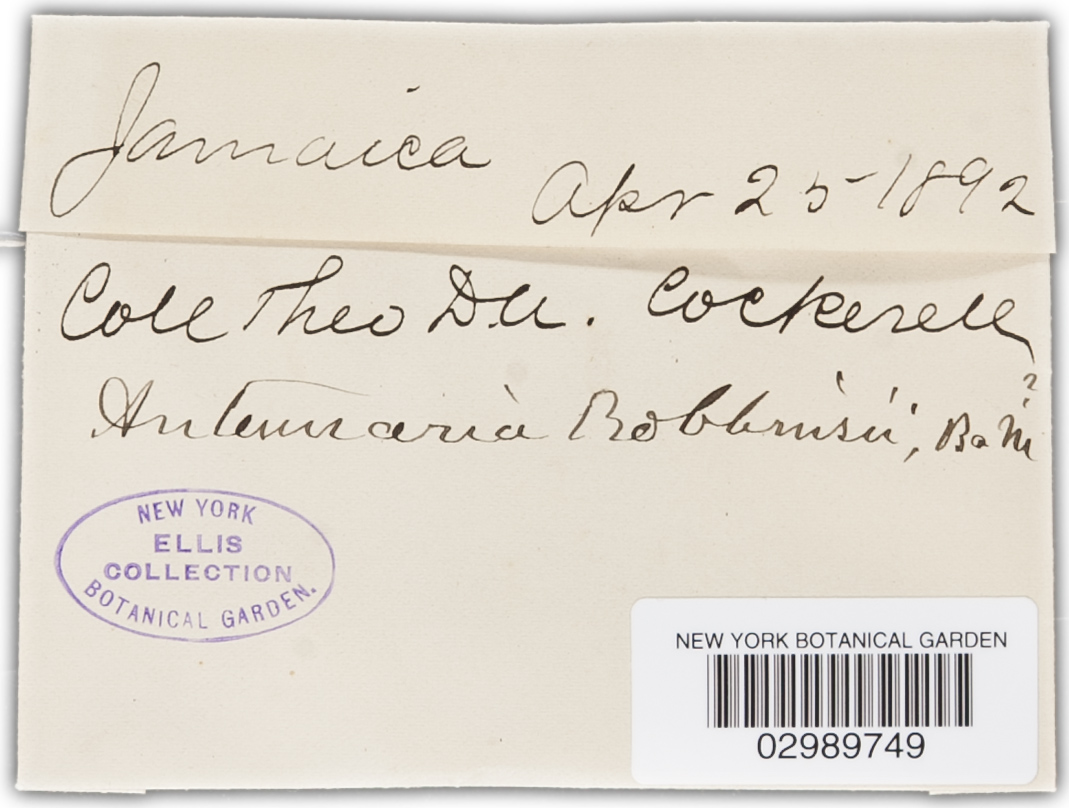 Jamaica
Apr 25-1892
Coll Theo D.A. Cockerell
Antennaria Robbinsii, B & M ?
NEW YORK
ELLIS
COLLECTION
BOTANICAL GARDEN.
NEW YORK BOTANICAL GARDEN
02989749